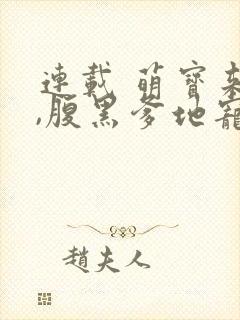 連載 萌寶
,腹黑爹地寵
趙夫人